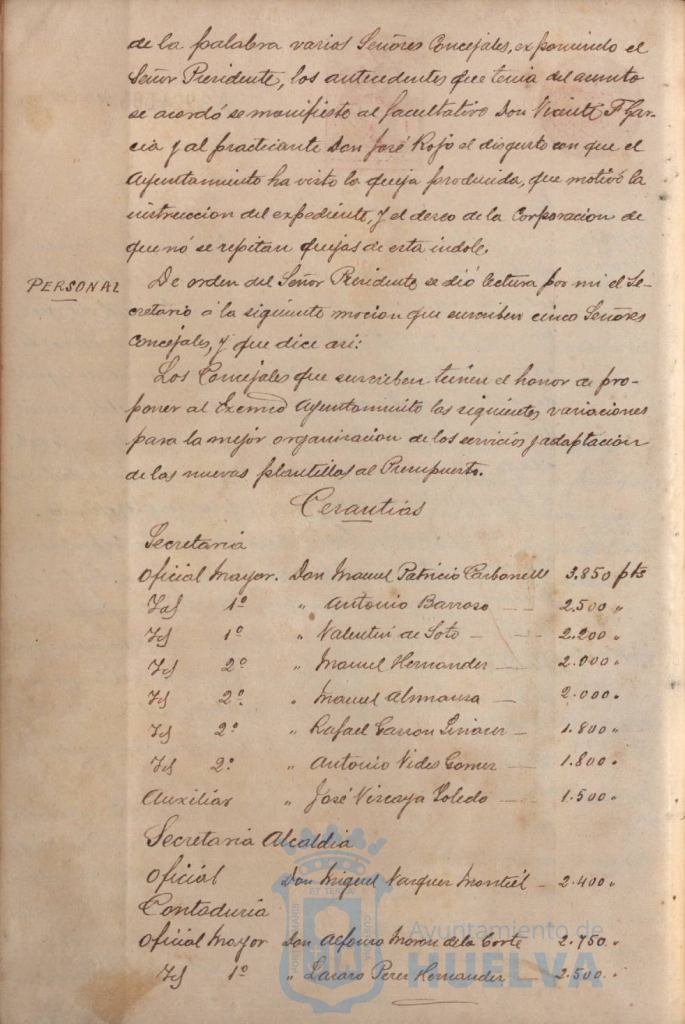 de la palabra varios Señores Concejales, exponiendo el
Señor Presidente, los antecedentes que tenia del asunto
se acordó se manifieste al facultativo Don Vicente F. Gar-
cia y al practicante Don José Rojo el disgusto con que el
Ayuntamiento ha visto la queja producida, que motivó la
instruccion del expediente, y el deseo de la Corporacion de
que nó se repitan quejas de esta indole.
PERSONAL
De orden del Señor Presidente se dió lectura por mi el Se-
cretario á la siguiente mocion que suscriben cinco Señores
Concejales, y que dice asi:
Los Concejales que suscriben tienen el honor de pro-
poner al Excmo Ayuntamiento las siguientes variaciones
para la mejor organizacion de los servicios y adaptación
de las nuevas plantillas al Presupuesto.
Cesantias
Secretaria
Oficial Mayor. Don Manuel Patricio Carbonell 3.850 pts
Id 1º " Antonio Barroso 2.500 "
Id 1º " Valentin de Soto 2.200 "
Id 2º " Manuel Hernandez 2.000 "
Id 2º " Manuel Almansa 2.000 "
Id 2º " Rafael Garzon Linares 1.800 "
Id 2º " Antonio Vides Gomez 1.800 "
Auxiliar " José Vizcaya Toledo 1.500 "
Secretaria Alcaldia
Oficial Don Miguel Vazquez Montiel 2.400 "
Contaduria
Oficial Mayor Don Alfonso Moron de la Corte 2.750 "
Id 1º " Lazaro Perez Hernandez 2.500 "
Ayuntamiento de
HUELVA